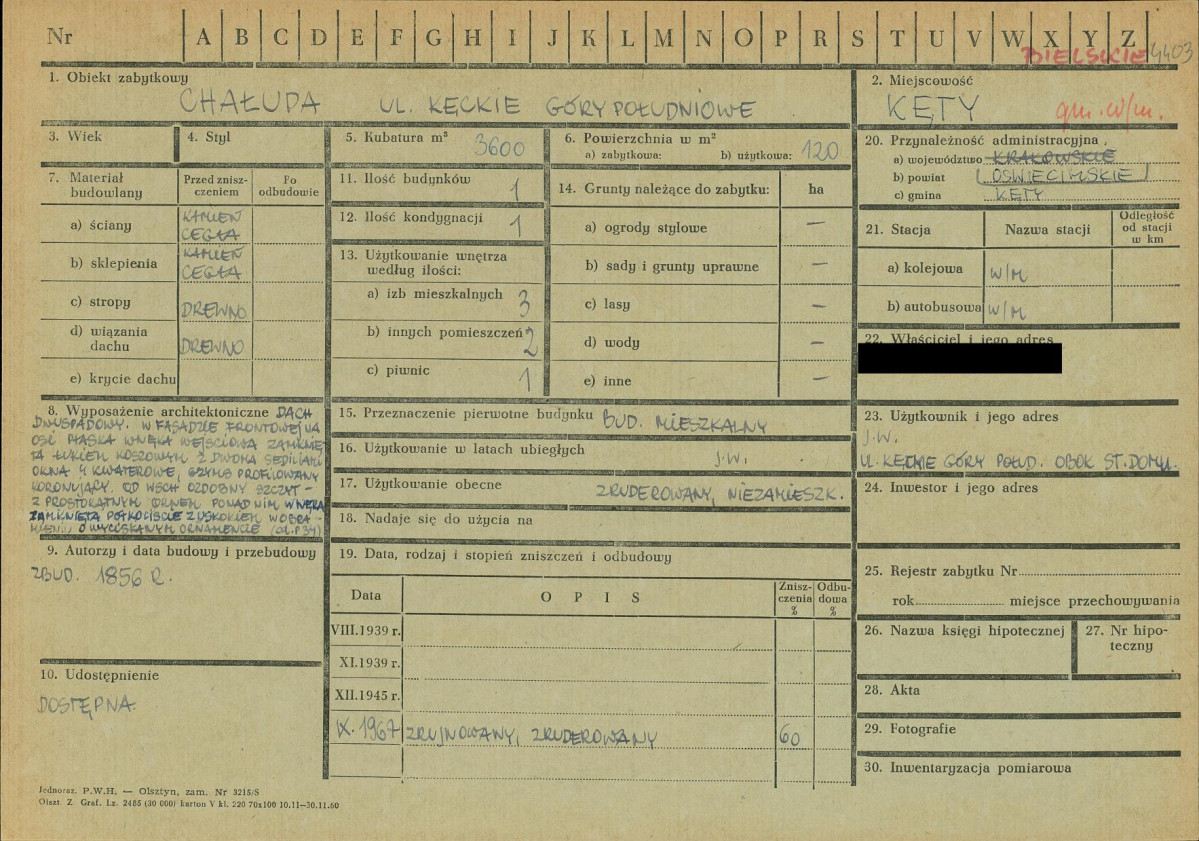 Nr A B C D E F G H I J K L M N O P R S T U V W X Y Z
BIELSKIE 4403
1. Obiekt zabytkowy
CHAŁUPA UL. KĘCKIE GÓRY POŁUDNIOWE
2. Miejscowość
KĘTY gm. w/m.
3. Wiek
4. Styl
5. Kubatura m³ 3600
6. Powierzchnia w m²
a) zabytkowa: b) użytkowa: 120
7. Materiał budowlany
Przed zniszczeniem
Po odbudowie
a) ściany KAMIEŃ CEGŁA
b) sklepienia KAMIEŃ CEGŁA
c) stropy DREWNO
d) wiązania dachu DREWNO
e) krycie dachu
8. Wyposażenie architektoniczne DACH
DWUSPADOWY. W FASADZIE FRONTOWEJ NA
OSI PŁASKA WNĘKA WEJŚCIOWA ZAMKNIĘ
TA ŁUKIEM KOSZOWYM Z DWOMA SEDILIAMI
OKNA 4 KWATEROWE, GZYMS PROFILOWANY
KORONUJĄCY. OD WSCH OZDOBNY SZCZYT –
Z PROSTOKĄTNYM OKNEM. PONAD NIM WNĘKA
ZAMKNIĘTA PÓŁKOLIŚCIE Z USKOKIEM W OBRA-
O WYCISKANYM ORNAMENCIE
9. Autorzy i data budowy i przebudowy
ZBUD. 1856 R.
10. Udostępnienie
DOSTĘPNA
11. Ilość budynków 1
12. Ilość kondygnacji 1
13. Użytkowanie wnętrza według ilości:
a) izb mieszkalnych 3
b) innych pomieszczeń 2
c) piwnic 1
14. Grunty należące do zabytku: ha
a) ogrody stylowe —
b) sady i grunty uprawne —
c) lasy —
d) wody —
e) inne —
15. Przeznaczenie pierwotne budynku BUD. MIESZKALNY
16. Użytkowanie w latach ubiegłych J.W.
17. Użytkowanie obecne ZRUDEROWANY, NIEZAMIESZK.
18. Nadaje się do użycia na
19. Data, rodzaj i stopień zniszczeń i odbudowy
Data OPIS Zniszczenia % Odbudowa %
VIII.1939 r.
XI.1939 r.
XII.1945 r.
IX. 1967 ZRUJNOWANY, ZRUDEROWANY 60
20. Przynależność administracyjna
a) województwo KRAKOWSKIE
b) powiat OŚWIĘCIMSKIE
c) gmina KĘTY
21. Stacja Nazwa stacji Odległość od stacji w km
a) kolejowa W/M
b) autobusowa W/M
22. Właściciel i jego adres
23. Użytkownik i jego adres
J.W.
UL. KĘCKIE GÓRY POŁUD. OBOK ST. DOMU.
24. Inwestor i jego adres
25. Rejestr zabytku Nr
rok miejsce przechowywania
26. Nazwa księgi hipotecznej
27. Nr hipoteczny
28. Akta
29. Fotografie
30. Inwentaryzacja pomiarowa
Jednoraz. P.W.H. — Olsztyn, zam. Nr 3215/S
Olszt. Z. Graf. Lz. 2485 (30 000) karton V kl. 220 70x100 10.11—30.11.60